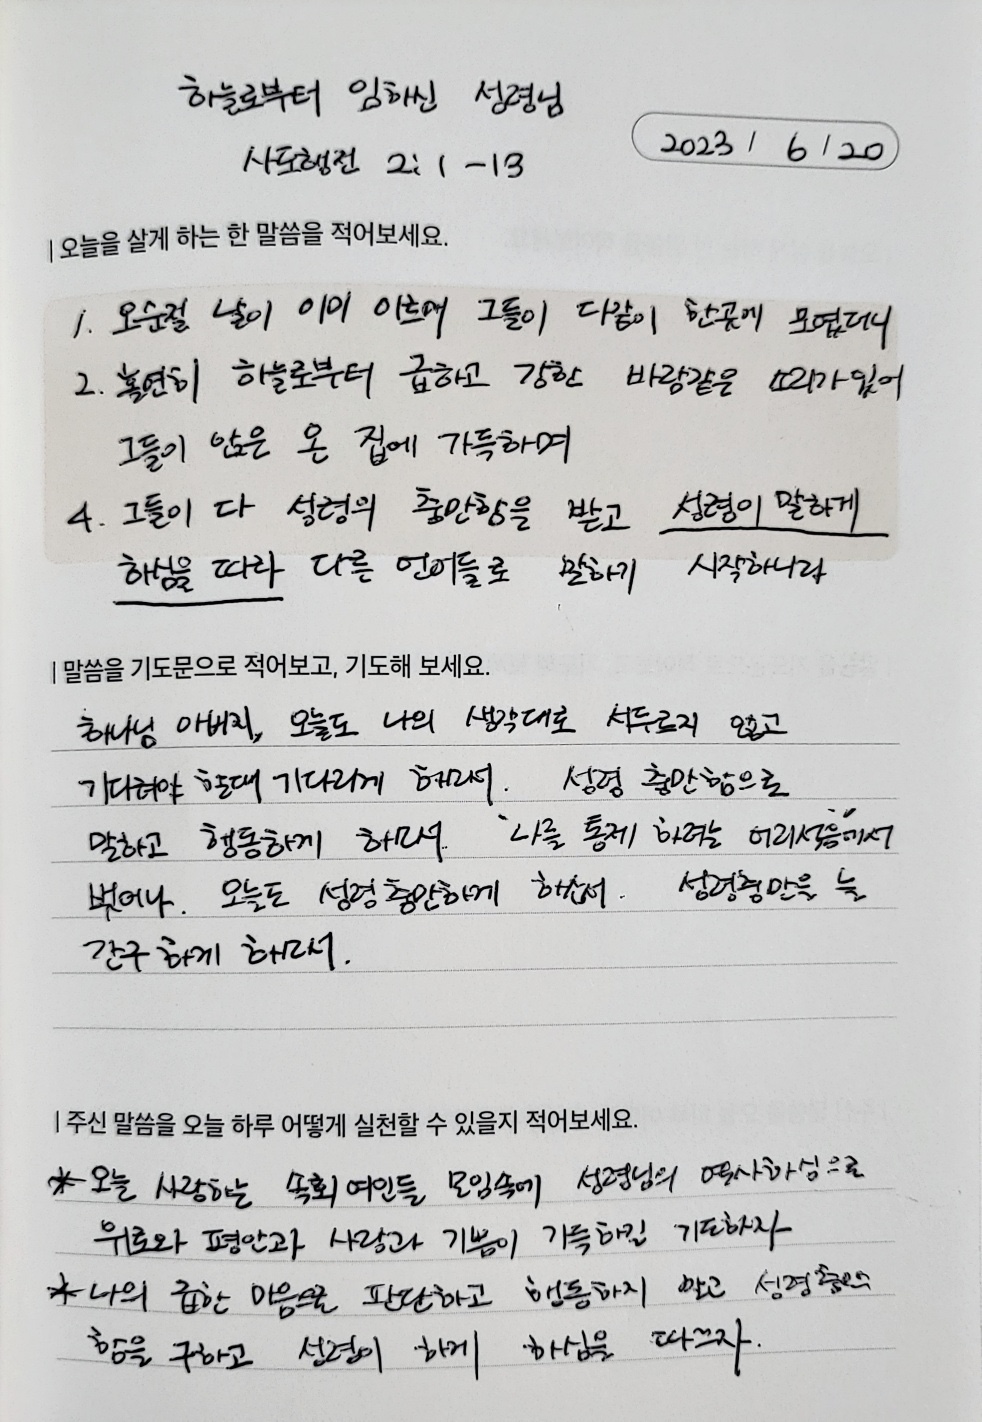 하늘로부터 임하신 성령님
사도행전 2:1-13
2023 / 6 / 20
오늘을 살게 하는 한 말씀을 적어보세요.
1. 오순절 날이 이미 이르매 그들이 다같이 한곳에 모였더니
2. 홀연히 하늘로부터 급하고 강한 바람같은 소리가 있어
그들이 앉은 온 집에 가득하며
4. 그들이 다 성령의 충만함을 받고 성령이 말하게
하심을 따라 다른 언어들로 말하기 시작하니라
말씀을 기도문으로 적어보고, 기도해 보세요.
하나님 아버지, 오늘도 나의 생각대로 서두르지 않고
기다려야 할때 기다리게 하소서. 성령 충만함으로
말하고 행동하게 하소서. 나를 통제 하려는 어리석음에서
벗어나. 오늘도 성령충만하게 하소서. 성령충만을 늘
간구하게 하소서.
주신 말씀을 오늘 하루 어떻게 실천할 수 있을지 적어보세요.
* 오늘 사랑하는 속회여인들 모임속에 성령님의 역사하심으로
위로와 평안과 사랑과 기쁨이 가득하길 기도하자
* 나의 급한 마음으로 판단하고 행동하지 않고 성령충만
함을 구하고 성령이 하게 하심을 따르자.